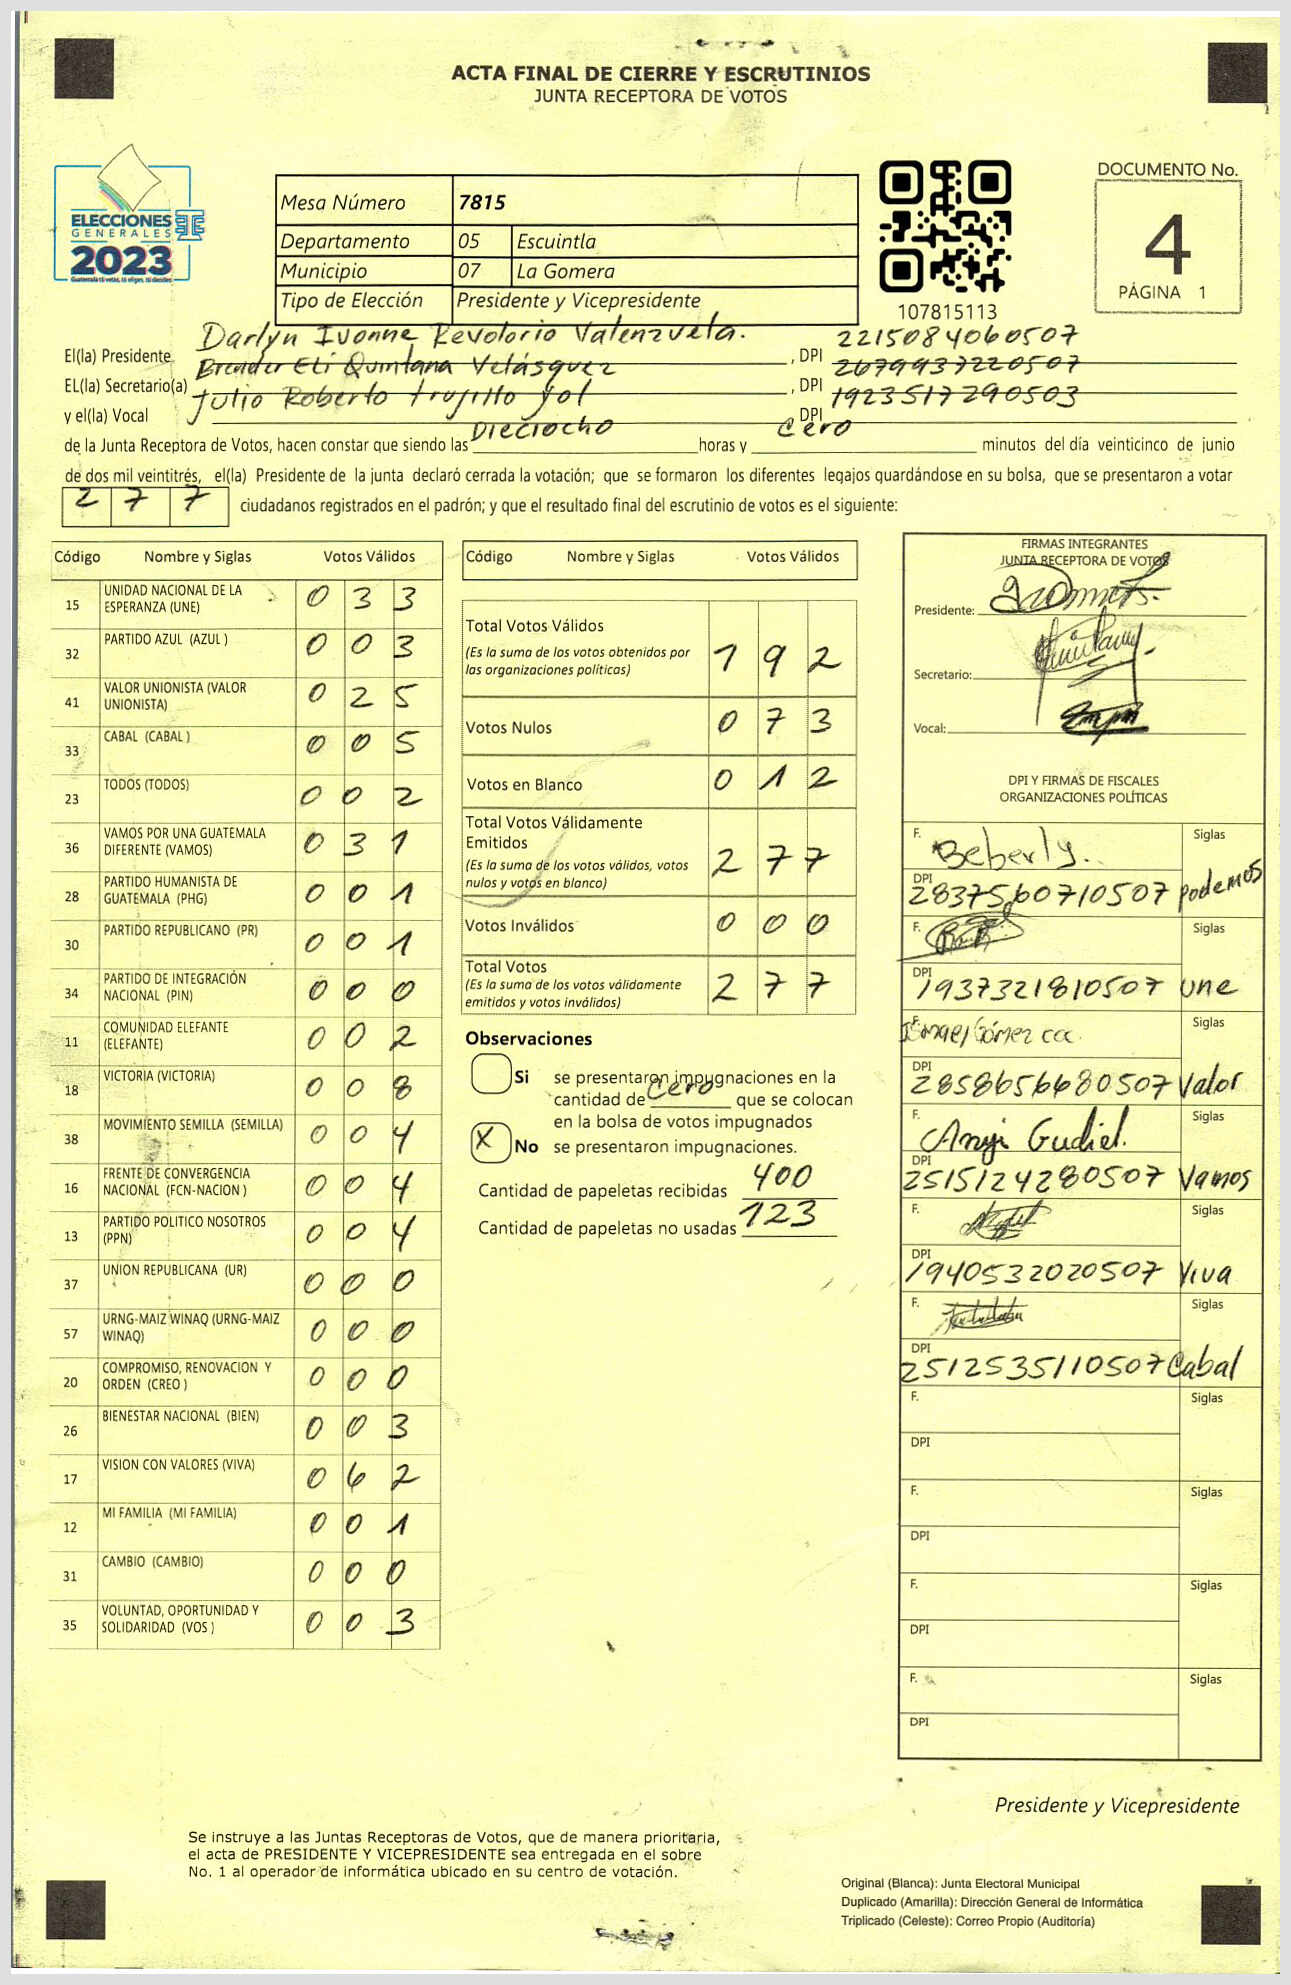 ACTA FINAL DE CIERRE Y ESCRUTINIOS
JUNTA RECEPTORA DE VOTOS
ELECCIONES
GENERALES
2023
Mesa Número 7815
Departamento 05 Escuintla
Municipio 07 La Gomera
Tipo de Elección Presidente y Vicepresidente
107815113
DOCUMENTO No.
4
PÁGINA 1
El(la) Presidente Darlyn Ivonne Revolorio Valenzuela. , DPI 2215084060507
EL(la) Secretario(a) Brender Elí Quintana Velásquez , DPI 2679937220507
y el(la) Vocal Julio Roberto Trujillo Jol DPI 1923517290503
de la Junta Receptora de Votos, hacen constar que siendo las Dieciocho horas y Cero minutos del día veinticinco de junio
de dos mil veintitrés, el(la) Presidente de la junta declaró cerrada la votación; que se formaron los diferentes legajos quardándose en su bolsa, que se presentaron a votar
277 ciudadanos registrados en el padrón; y que el resultado final del escrutinio de votos es el siguiente:
Código Nombre y Siglas Votos Válidos
15 UNIDAD NACIONAL DE LA ESPERANZA (UNE) 0 3 3
32 PARTIDO AZUL (AZUL ) 0 0 3
41 VALOR UNIONISTA (VALOR UNIONISTA) 0 2 5
33 CABAL (CABAL ) 0 0 5
23 TODOS (TODOS) 0 0 2
36 VAMOS POR UNA GUATEMALA DIFERENTE (VAMOS) 0 3 1
28 PARTIDO HUMANISTA DE GUATEMALA (PHG) 0 0 1
30 PARTIDO REPUBLICANO (PR) 0 0 1
34 PARTIDO DE INTEGRACIÓN NACIONAL (PIN) 0 0 0
11 COMUNIDAD ELEFANTE (ELEFANTE) 0 0 2
18 VICTORIA (VICTORIA) 0 0 8
38 MOVIMIENTO SEMILLA (SEMILLA) 0 0 4
16 FRENTE DE CONVERGENCIA NACIONAL (FCN-NACION ) 0 0 4
13 PARTIDO POLITICO NOSOTROS (PPN) 0 0 4
37 UNION REPUBLICANA (UR) 0 0 0
57 URNG-MAIZ WINAQ (URNG-MAIZ WINAQ) 0 0 0
20 COMPROMISO, RENOVACION Y ORDEN (CREO ) 0 0 0
26 BIENESTAR NACIONAL (BIEN) 0 0 3
17 VISION CON VALORES (VIVA) 0 6 2
12 MI FAMILIA (MI FAMILIA) 0 0 1
31 CAMBIO (CAMBIO) 0 0 0
35 VOLUNTAD, OPORTUNIDAD Y SOLIDARIDAD (VOS ) 0 0 3
Código Nombre y Siglas Votos Válidos
Total Votos Válidos
(Es la suma de los votos obtenidos por
las organizaciones políticas) 1 9 2
Votos Nulos 0 7 3
Votos en Blanco 0 1 2
Total Votos Válidamente
Emitidos
(Es la suma de los votos válidos, votos
nulos y votos en blanco) 2 7 7
Votos Inválidos 0 0 0
Total Votos
(Es la suma de los votos válidamente
emitidos y votos inválidos) 2 7 7
Observaciones
Si se presentaron impugnaciones en la
cantidad de Cero que se colocan
en la bolsa de votos impugnados
X No se presentaron impugnaciones.
Cantidad de papeletas recibidas 400
Cantidad de papeletas no usadas 123
FIRMAS INTEGRANTES
JUNTA RECEPTORA DE VOTOS
Presidente:
Secretario:
Vocal:
DPI Y FIRMAS DE FISCALES
ORGANIZACIONES POLÍTICAS
F. Beberly. Siglas
DPI 2837560710507 podemos
F. Siglas
DPI 1937321810507 une
F. Ismael Gómez Siglas
DPI 2858656680507 Valor
F. Anyi Gudiel. Siglas
DPI 2515124280507 Vamos
F. Siglas
DPI 1940532020507 Viva
F. Siglas
DPI 2512535110507 Cabal
F. Siglas
DPI
F. Siglas
DPI
F. Siglas
DPI
F. Siglas
DPI
Presidente y Vicepresidente
Se instruye a las Juntas Receptoras de Votos, que de manera prioritaria,
el acta de PRESIDENTE Y VICEPRESIDENTE sea entregada en el sobre
No. 1 al operador de informática ubicado en su centro de votación.
Original (Blanca): Junta Electoral Municipal
Duplicado (Amarilla): Dirección General de Informática
Triplicado (Celeste): Correo Propio (Auditoría)